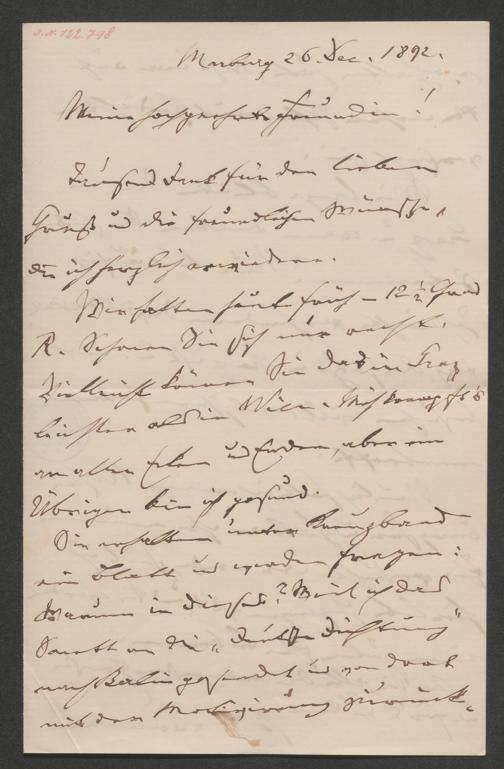 J.N. 122.798
Marburg 26. Dec. 1892.
Meine hochgeehrte Freundin!
Tausend Dank für den lieben
Gruß u die freundlichen Wünsche,
die ich herzlich erwiedere.
Wir hatten heute früh – 12 ½ Grad
R. Schonen Sie sich nur recht.
Vielleicht können Sie das in Graz
leichter als in Wien. Mich
an allen Ecken und Enden, aber im
Übrigen bin ich gesund.
Sie erhalten unter Kreuzband
ein Blatt und werden fragen:
Warum in dieses? Weil ich das
Sonett an die „Deutsche Dichtung"
nach Berlin gesendet u von dort
mit der Motivirung zurück-